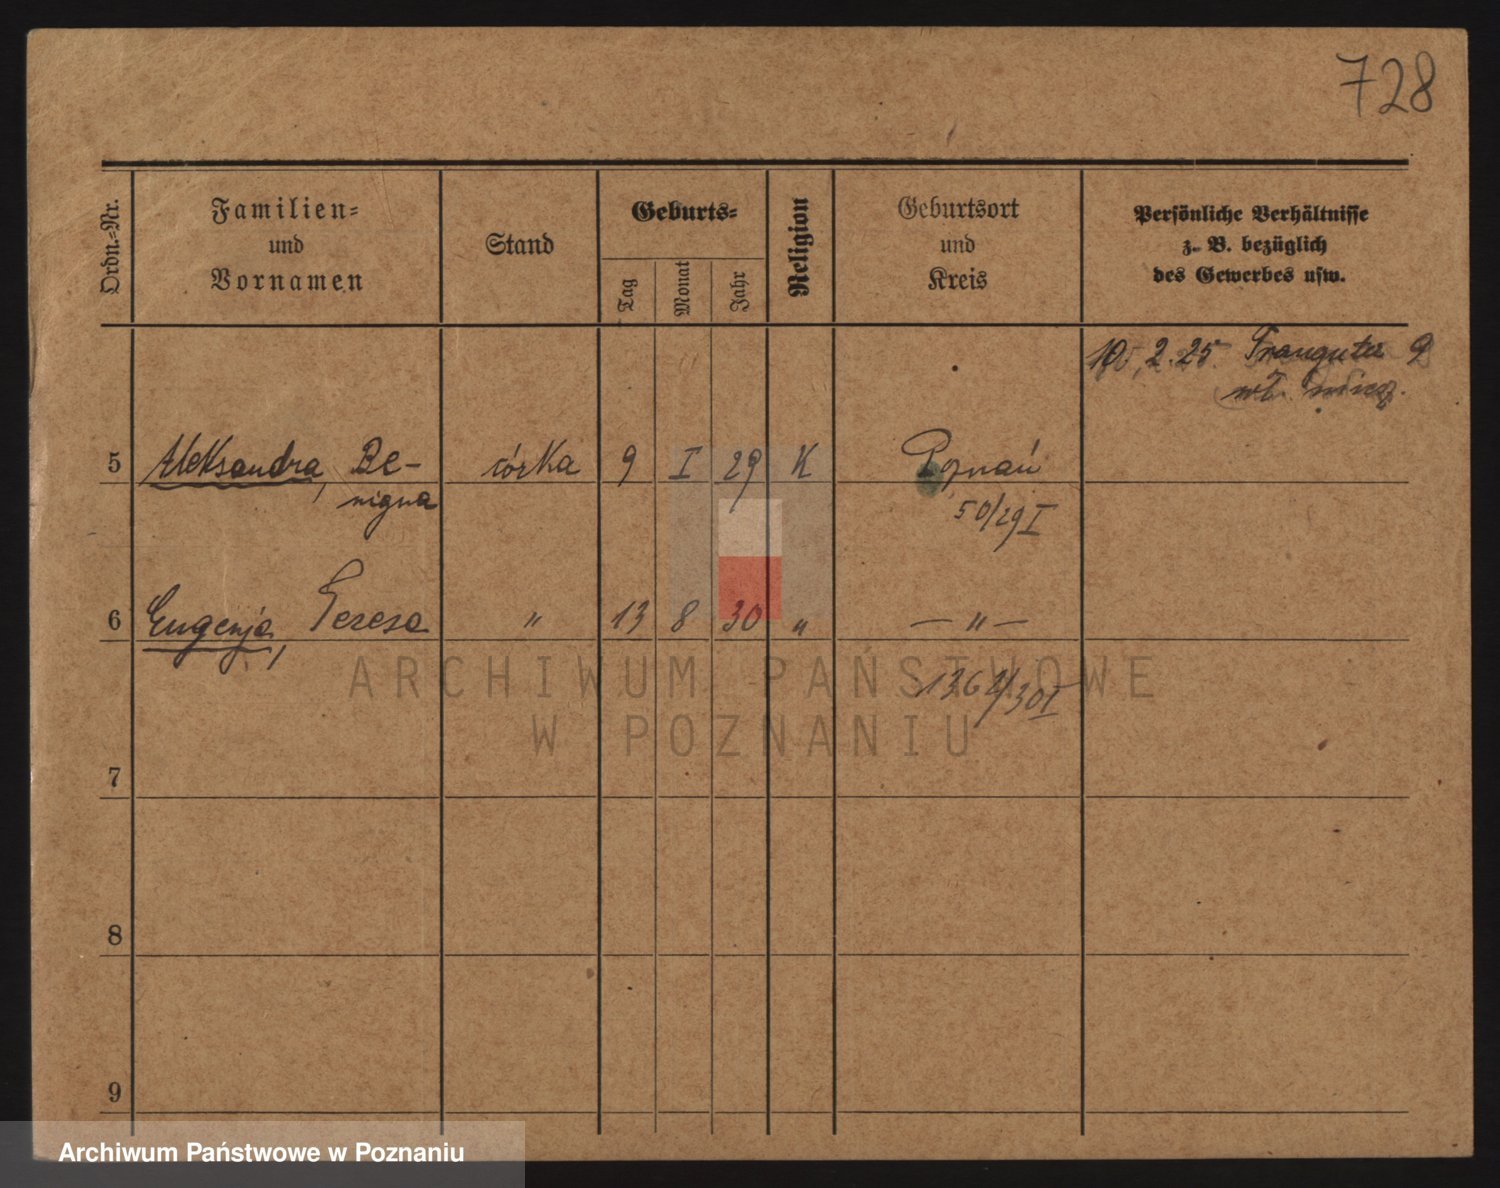 728
Ordn.-Nr.
Familien-
und
Vornamen
Stand
Geburts-
Tag
Monat
Jahr
Religion
Geburtsort
und
Kreis
Persönliche Verhältnisse
z. B. bezüglich
des Gewerbes usw.
2.25 9
5 Aleksandra, Be- córka 9 I 29 K Poznań
nigna
50/29 I
6 Eugenja, Teresa " 13 8 30 " — " —
1362/30 I
ARCHIWUM PAŃSTWOWE
W POZNANIU
7
8
9
Archiwum Państwowe w Poznaniu